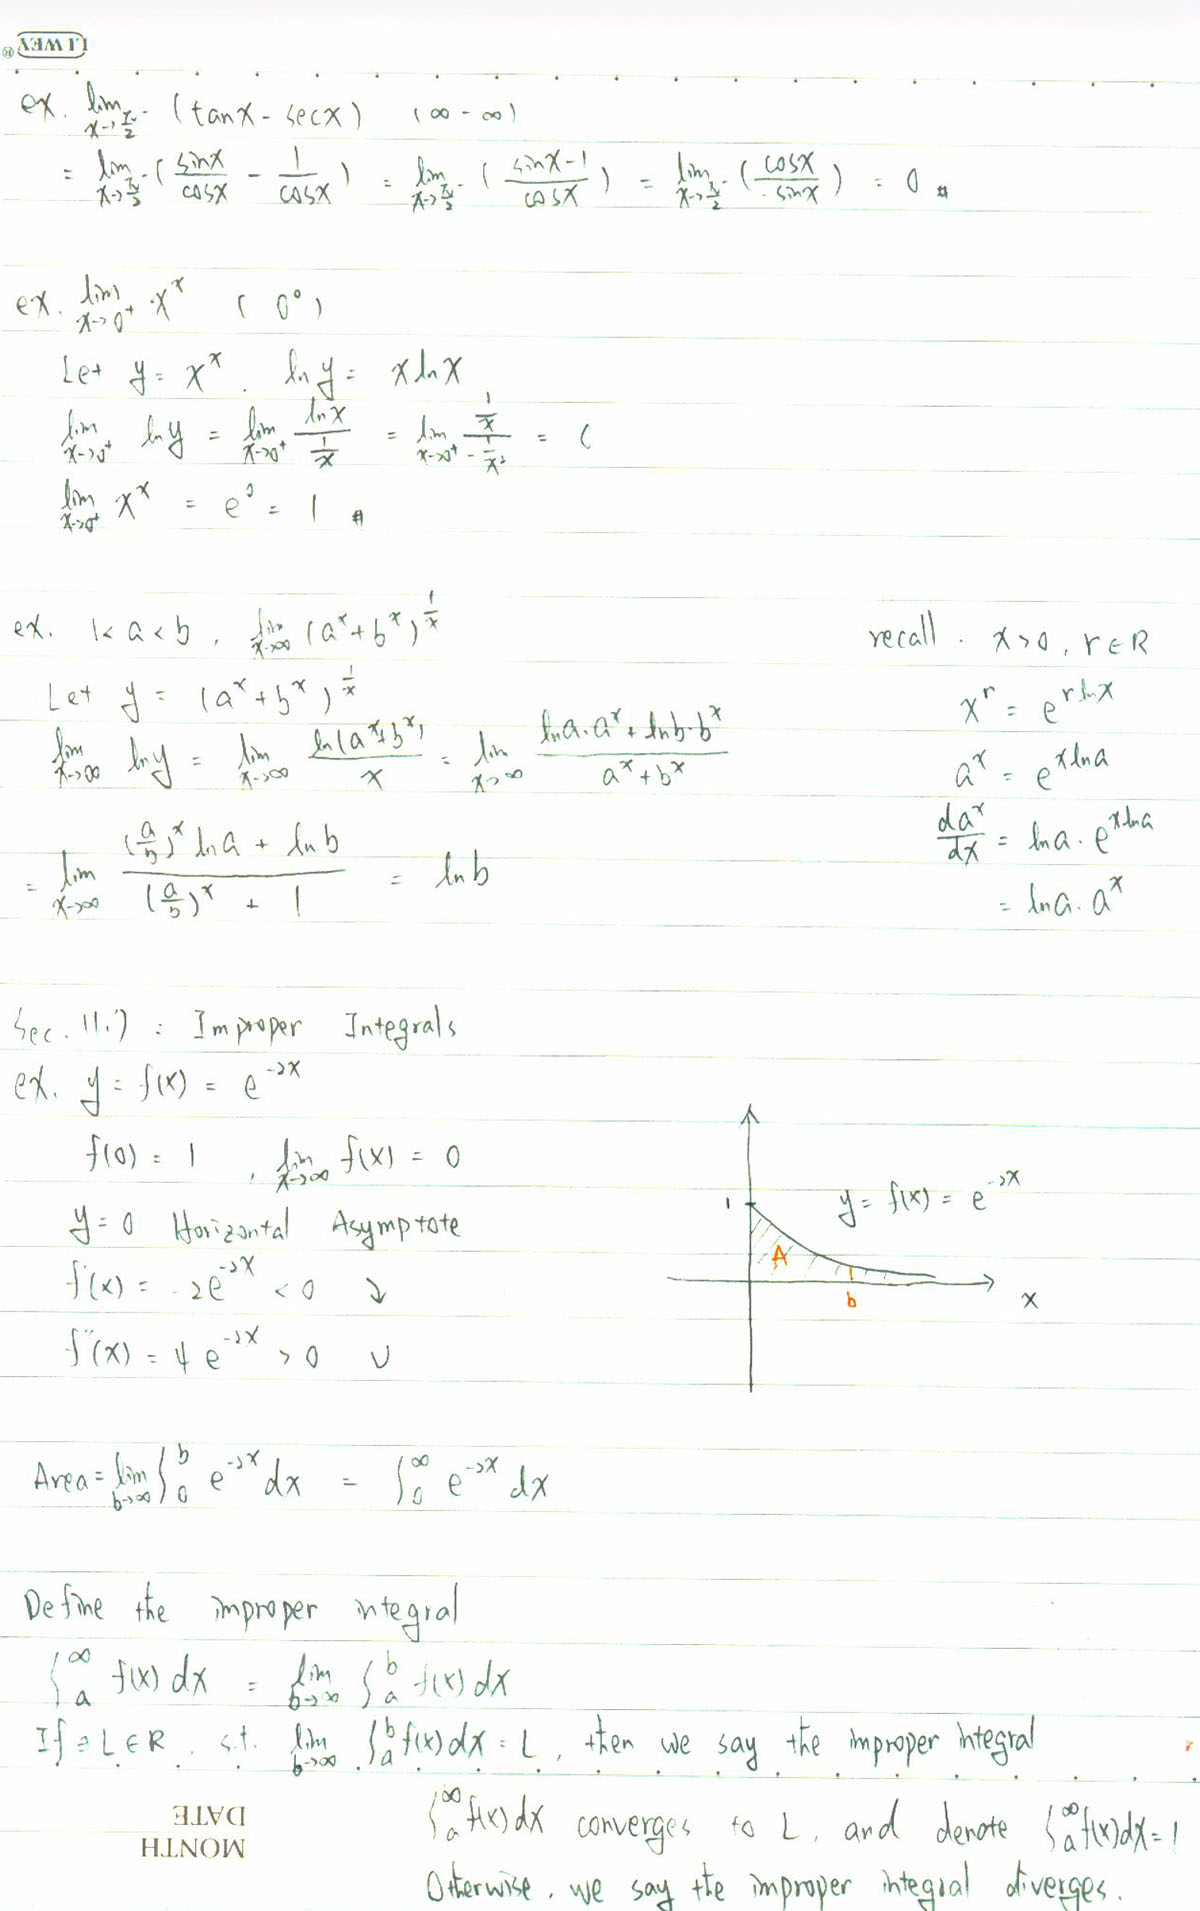 LIWEY®
ex. lim x→π/2⁻ (tanx - secx) (∞ - ∞)
= lim x→π/2⁻ (sinx/cosx - 1/cosx) = lim x→π/2⁻ ((sinx-1)/cosx) = lim x→π/2⁻ (cosx/-sinx) = 0 #
ex. lim x→0⁺ x^x (0⁰)
Let y = x^x. ln y = x ln x
lim x→0⁺ ln y = lim x→0⁺ ln x/(1/x) = lim x→0⁺ (1/x)/(-1/x²) = 0
lim x→0⁺ x^x = e⁰ = 1 #
ex. 1<a<b, lim x→∞ (a^x + b^x)^(1/x)
Let y = (a^x + b^x)^(1/x)
lim x→∞ ln y = lim x→∞ ln(a^x+b^x)/x = lim x→∞ (lna·a^x + lnb·b^x)/(a^x + b^x)
= lim x→∞ ((a/b)^x lna + lnb)/((a/b)^x + 1) = ln b
recall. x>0, r∈R
x^r = e^(r lnx)
a^x = e^(x lna)
da^x/dx = lna · e^(x lna)
= lna · a^x
Sec. 11.7 : Improper Integrals
ex. y = f(x) = e^(-2x)
f(0) = 1, lim x→∞ f(x) = 0
y=0 Horizontal Asymptote
f'(x) = -2e^(-2x) < 0 ↘
f''(x) = 4e^(-2x) > 0 ∪
1
y = f(x) = e^(-2x)
A
b
x
Area = lim b→∞ ∫₀^b e^(-2x) dx = ∫₀^∞ e^(-2x) dx
Define the improper integral
∫ₐ^∞ f(x) dx = lim b→∞ ∫ₐ^b f(x) dx
If ∃ L∈R, s.t. lim b→∞ ∫ₐ^b f(x) dx = L, then we say the improper integral
∫ₐ^∞ f(x) dx converges to L, and denote ∫ₐ^∞ f(x) dx = L
Otherwise, we say the improper integral diverges.
MONTH
DATE